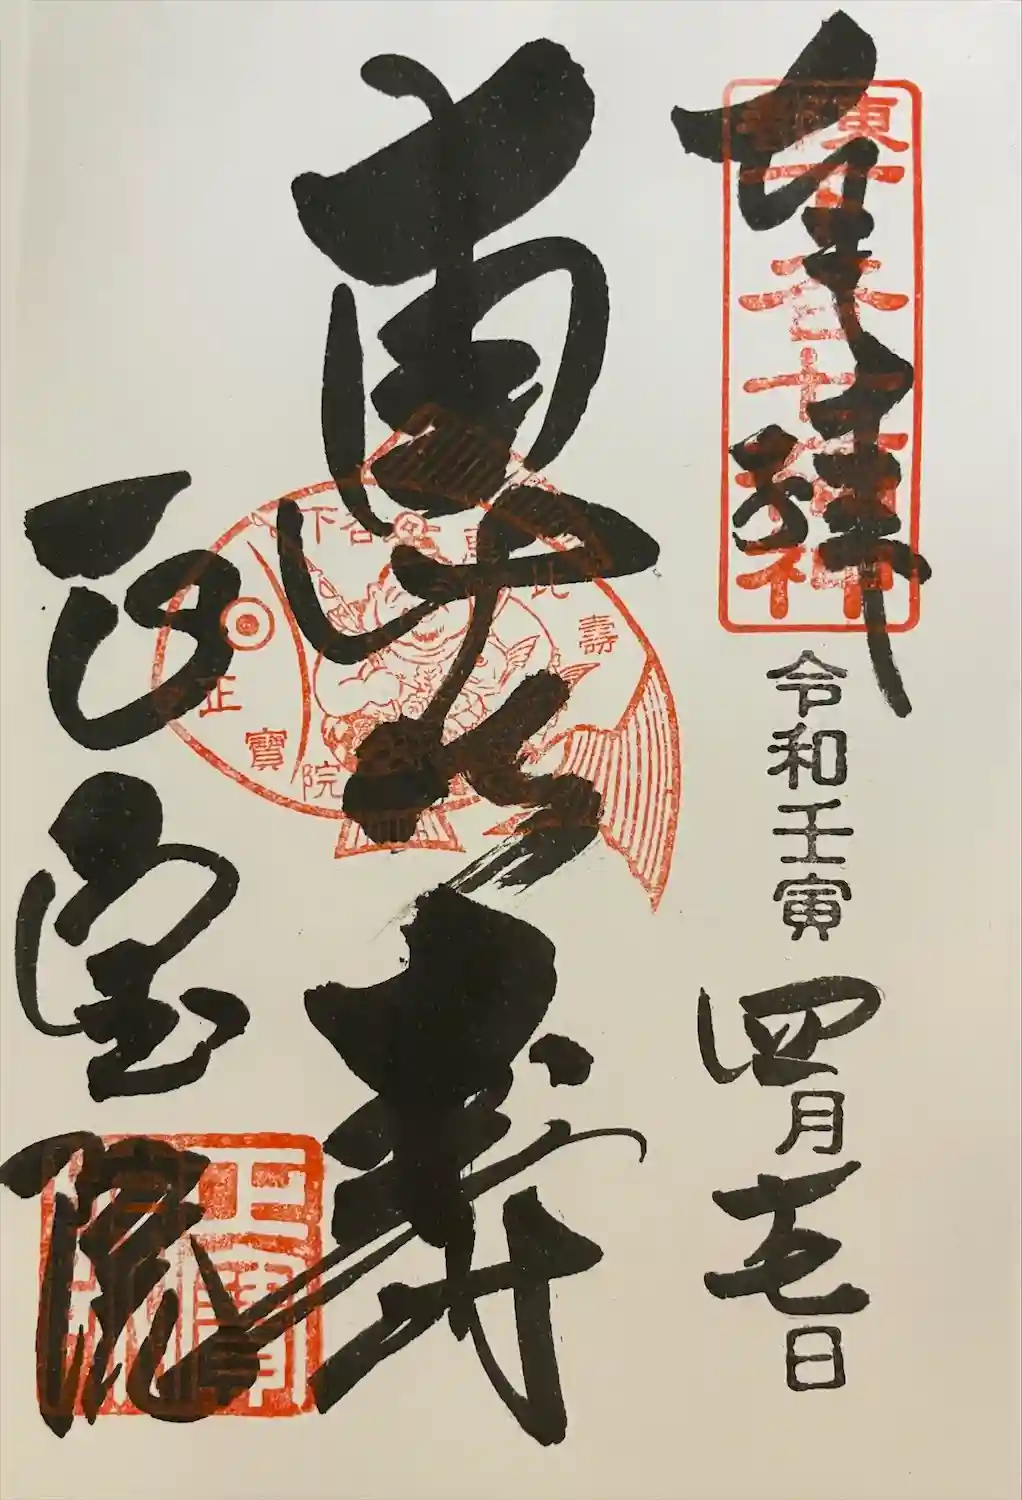 奉拝
東都下谷七福神
令和壬寅 四月 日
恵比寿
下谷 惠比壽
正寶院
正宝院
正寶院印